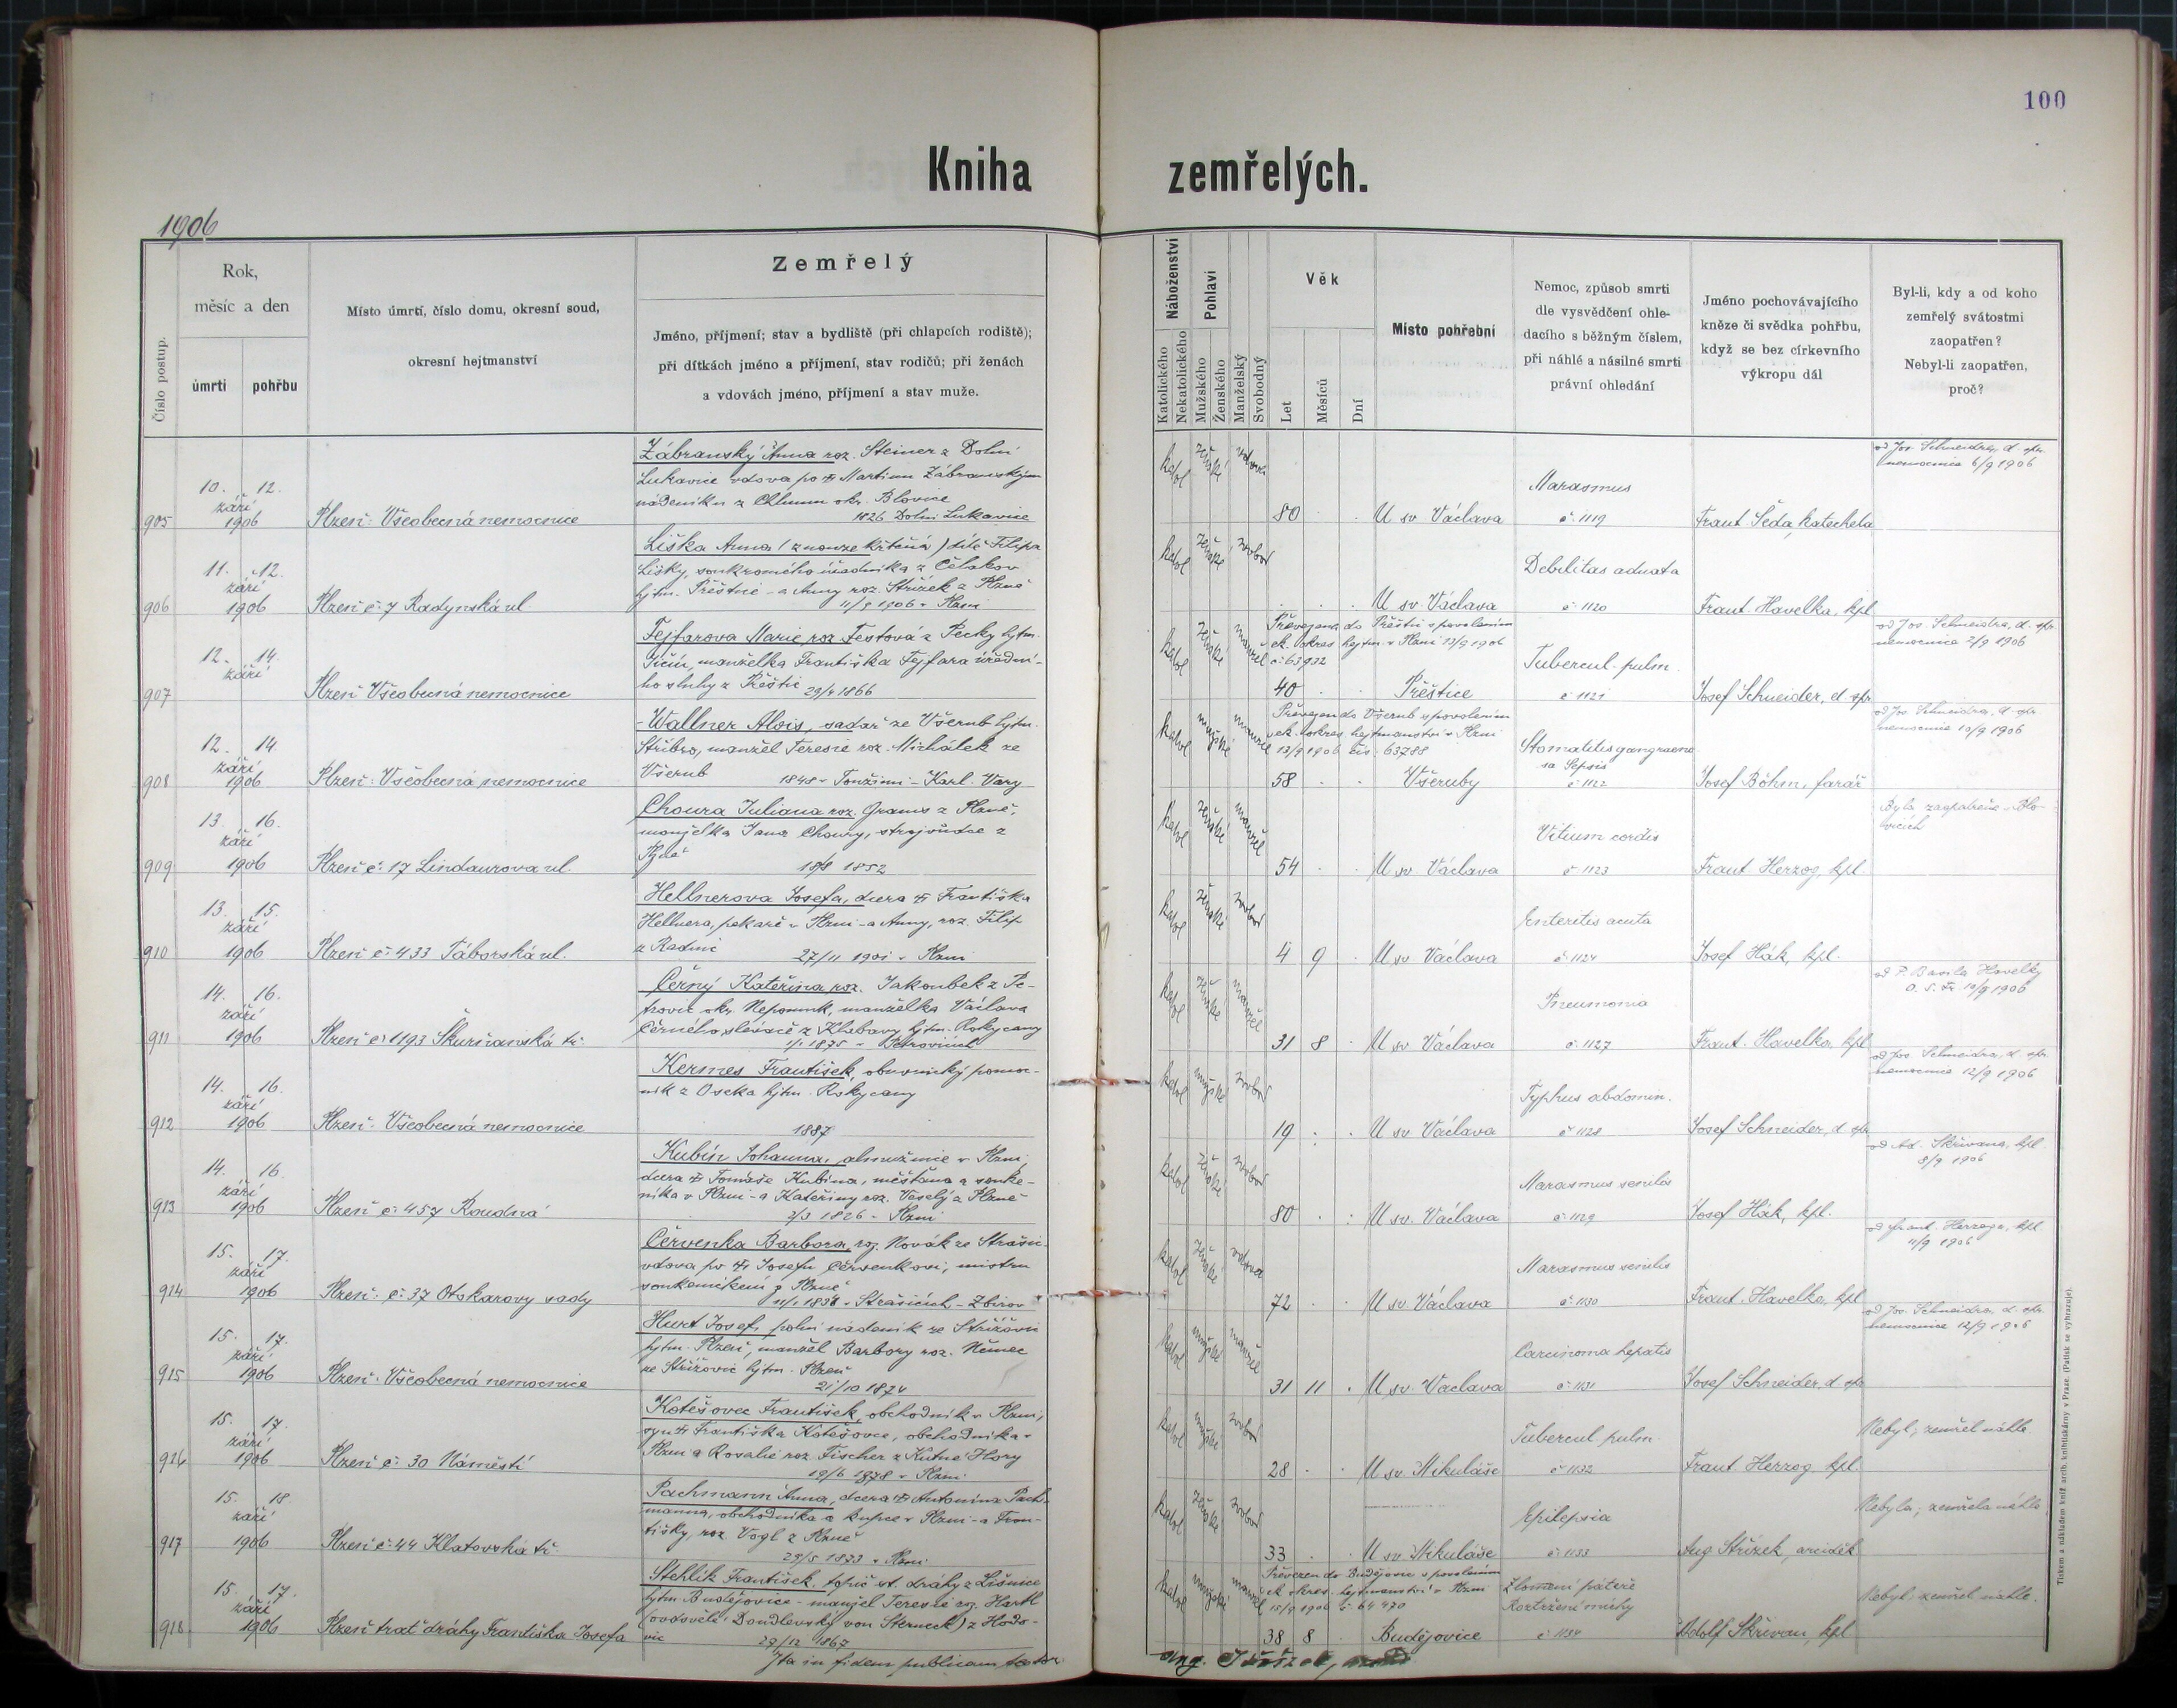 100
Kniha zemřelých.
1906
Číslo postup.
Rok,
měsíc a den
úmrtí
pohřbu
Místo úmrtí, číslo domu, okresní soud,
okresní hejtmanství
Zemřelý
Jméno, příjmení; stav a bydliště (při chlapcích rodiště);
při dítkách jméno a příjmení, stav rodičů; při ženách
a vdovách jméno, příjmení a stav muže.
Náboženství
Katolického
Nekatolického
Pohlaví
Mužského
Ženského
Manželský
Svobodný
Věk
Let
Měsíců
Dní
Místo pohřební
Nemoc, způsob smrti
dle vysvědčení ohle-
dacího s běžným číslem,
při náhlé a násilné smrti
právní ohledání
Jméno pochovávajícího
kněze či svědka pohřbu,
když se bez církevního
výkropu dál
Byl-li, kdy a od koho
zemřelý svátostmi
zaopatřen?
Nebyl-li zaopatřen,
proč?
905
10. 12.
září
1906
Plzeň: Všeobecná nemocnice
Zábranský Anna roz. Steiner z Dolní
Lukavice vdova po † Martinu Zábranským
nádeníku z Chlumu okr. Blovice
1826 Dolní Lukavice
katol ženské vdova
80
U sv. Václava
Marasmus
č. 1119
Frant. Šeda, katecheta
od Jos. Schneidra, d. spr.
nemocnice 6/9 1906
906
11. 12.
září
1906
Plzeň č. 7 Radynská ul
Liška Anna (z nouze křtěná) dítě Filipa
Lišky, soukromého úředníka z Čelakov
hjtm. Přeštice - a Anny roz. Střížek z Plzně
11/9 1906 v Plzni
katol ženské svobod
U sv. Václava
Debilitas adnata
č. 1120
Frant. Havelka, kpl.
907
12. 14.
září
Plzeň Všeobecná nemocnice
Fejfarova Marie roz. Festová z Pecky hjtm.
Jičín, manželka Františka Fejfara úřední-
ho sluhy z Přeštic 29/4 1866
katol ženské manžel
Převezena do Přeštic s povolením
ck. okres. hejtm. v Plzni 13/9 1906
č. 63932
40
Přeštice
Tubercul. pulm.
č. 1121
Josef Schneider, d. spr.
od Jos. Schneidra, d. spr.
nemocnice 2/9 1906
908
12. 14.
září
1906
Plzeň: Všeobecná nemocnice
Wallner Alois, sadař ze Všerub hjtm.
Stříbro, manžel Teresie roz. Michálek ze
Všerub 1848 v Toužimi - Karl. Vary
katol mužské manžel
Převezen do Všerub s povolením
ck. okres. hejtmanství v Plzni
13/9 1906 čís. 63788
58
Všeruby
Stomatitis gangraeno-
sa Sepsis
č. 1122
Josef Böhm, farář
od Jos. Schneidra, d. spr.
nemocnice 10/9 1906
909
13. 16.
září
1906
Plzeň č. 17 Lindaurova ul.
Choura Juliana roz. Grams z Plzně,
manželka Jana Choury, strojvůdce z
Plzně 18/8 1852
katol ženské manžel
54
U sv. Václava
Vitium cordis
č. 1123
Frant. Herzog, kpl.
Byla zaopatřena v Blo-
vicích
910
13. 15.
září
1906
Plzeň č. 433 Táborská ul.
Hellnerova Josefa, dcera † Františka
Hellnera, pekaře v Plzni - a Anny, roz. Filip
z Radnic
27/11 1901 v Plzni
katol ženské svobod
4 9
U sv. Václava
Enteritis acuta
č. 1124
Josef Hák, kpl.
911
14. 16.
září
1906
Plzeň č. 1193 Škurňanská tř.
Černý Kateřina roz. Jakoubek z Pe-
trovic okr. Nepomuk, manželka Václava
Černého, slévače z Klabavy hjtm. Rokycany
1875 v Petrovicích
katol ženské manžel
31 8
U sv. Václava
Pneumonia
č. 1127
Frant. Havelka, kpl.
od P. Basila Havelky
O. S. Fr. 10/9 1906
912
14. 16.
září
1906
Plzeň: Všeobecná nemocnice
Kermes František, obuvnický pomoc-
ník z Oseka hjtm. Rokycany
1887
katol mužské svobod
19
U sv. Václava
Typhus abdomin.
č. 1128
Josef Schneider, d. spr.
od Jos. Schneidra, d. spr.
nemocnice 12/9 1906
913
14. 16.
září
1906
Plzeň č. 457 Roudná
Kubín Johanna, almužnice v Plzni,
dcera † Tomáše Kubína, měšťana a souke-
níka v Plzni - a Kateřiny roz. Veselý z Plzně
2/3 1826 v Plzni
katol ženské svobod
80
U sv. Václava
Marasmus senilis
č. 1129
Josef Hák, kpl.
od Ad. Skřivana, kpl.
8/9 1906
914
15. 17.
září
1906
Plzeň: č. 37 Otokarovy sady
Červenka Barbora, roz. Novák ze Strašic
vdova po † Josefu Červenkovi, mistru
soukenickém z Plzně
1834 v Strašicích - Zbirov
katol ženské vdova
72
U sv. Václava
Marasmus senilis
č. 1130
Frant. Havelka, kpl.
od Frant. Herzoga, kpl.
11/9 1906
915
15. 17.
září
1906
Plzeň: Všeobecná nemocnice
Hurt Josef, polní nádeník ze Střížovic
hjtm. Plzeň, manžel Barbory roz. Němec
ze Střížovic hjtm. Plzeň
21/10 1874
katol mužské manžel
31 11
U sv. Václava
Carcinoma hepatis
č. 1131
Josef Schneider, d. spr.
od Jos. Schneidra, d. spr.
nemocnice 12/9 1906
916
15. 17.
září
1906
Plzeň č. 30 Náměstí
Kotěšovec František, obchodník v Plzni,
syn † Františka Kotěšovce, obchodníka v
Plzni a Rosalie roz. Fischer z Kutné Hory
19/6 1878 v Plzni
katol mužské svobod
28
U sv. Mikuláše
Tubercul pulm.
č. 1132
Frant Herzog, kpl.
Nebyl, zemřel náhle
917
15. 18
září
1906
Plzeň č. 44 Klatovská tř.
Pachmann Anna, dcera † Antonína Pach-
manna, obchodníka a kupce v Plzni - a Fran-
tišky, roz. Vogl z Plzně
29/5 1873 v Plzni
katol ženské svobod
33
U sv. Mikuláše
Epilepsia
č. 1133
Aug Střížek, arciděk
Nebyla; zemřela náhle
918
15. 17.
září
1906
Plzeň trať dráhy Františka Josefa
Stehlík František, topič st. dráhy z Lišnice
hjtm Budějovice - manžel Teresie roz. Hartl
(ovdovělé Doudlevský von Sterneck) z Hodo-
vic
29/12 1867
katol mužské manžel
Převezen do Budějovic s povolením
ck okres. hejtmanství v Plzni
15/9 1906 č. 64470
38 8
Budějovice
Zlomení páteře
Roztržení míchy
č. 1134
Adolf Skřivan, kpl.
Nebyl; zemřel náhle.
Ita in fidem publicam testor
Aug. Střížek,
Tiskem a nákladem kníž. arcib. knihtiskárny v Praze. (Patisk se vyhrazuje).